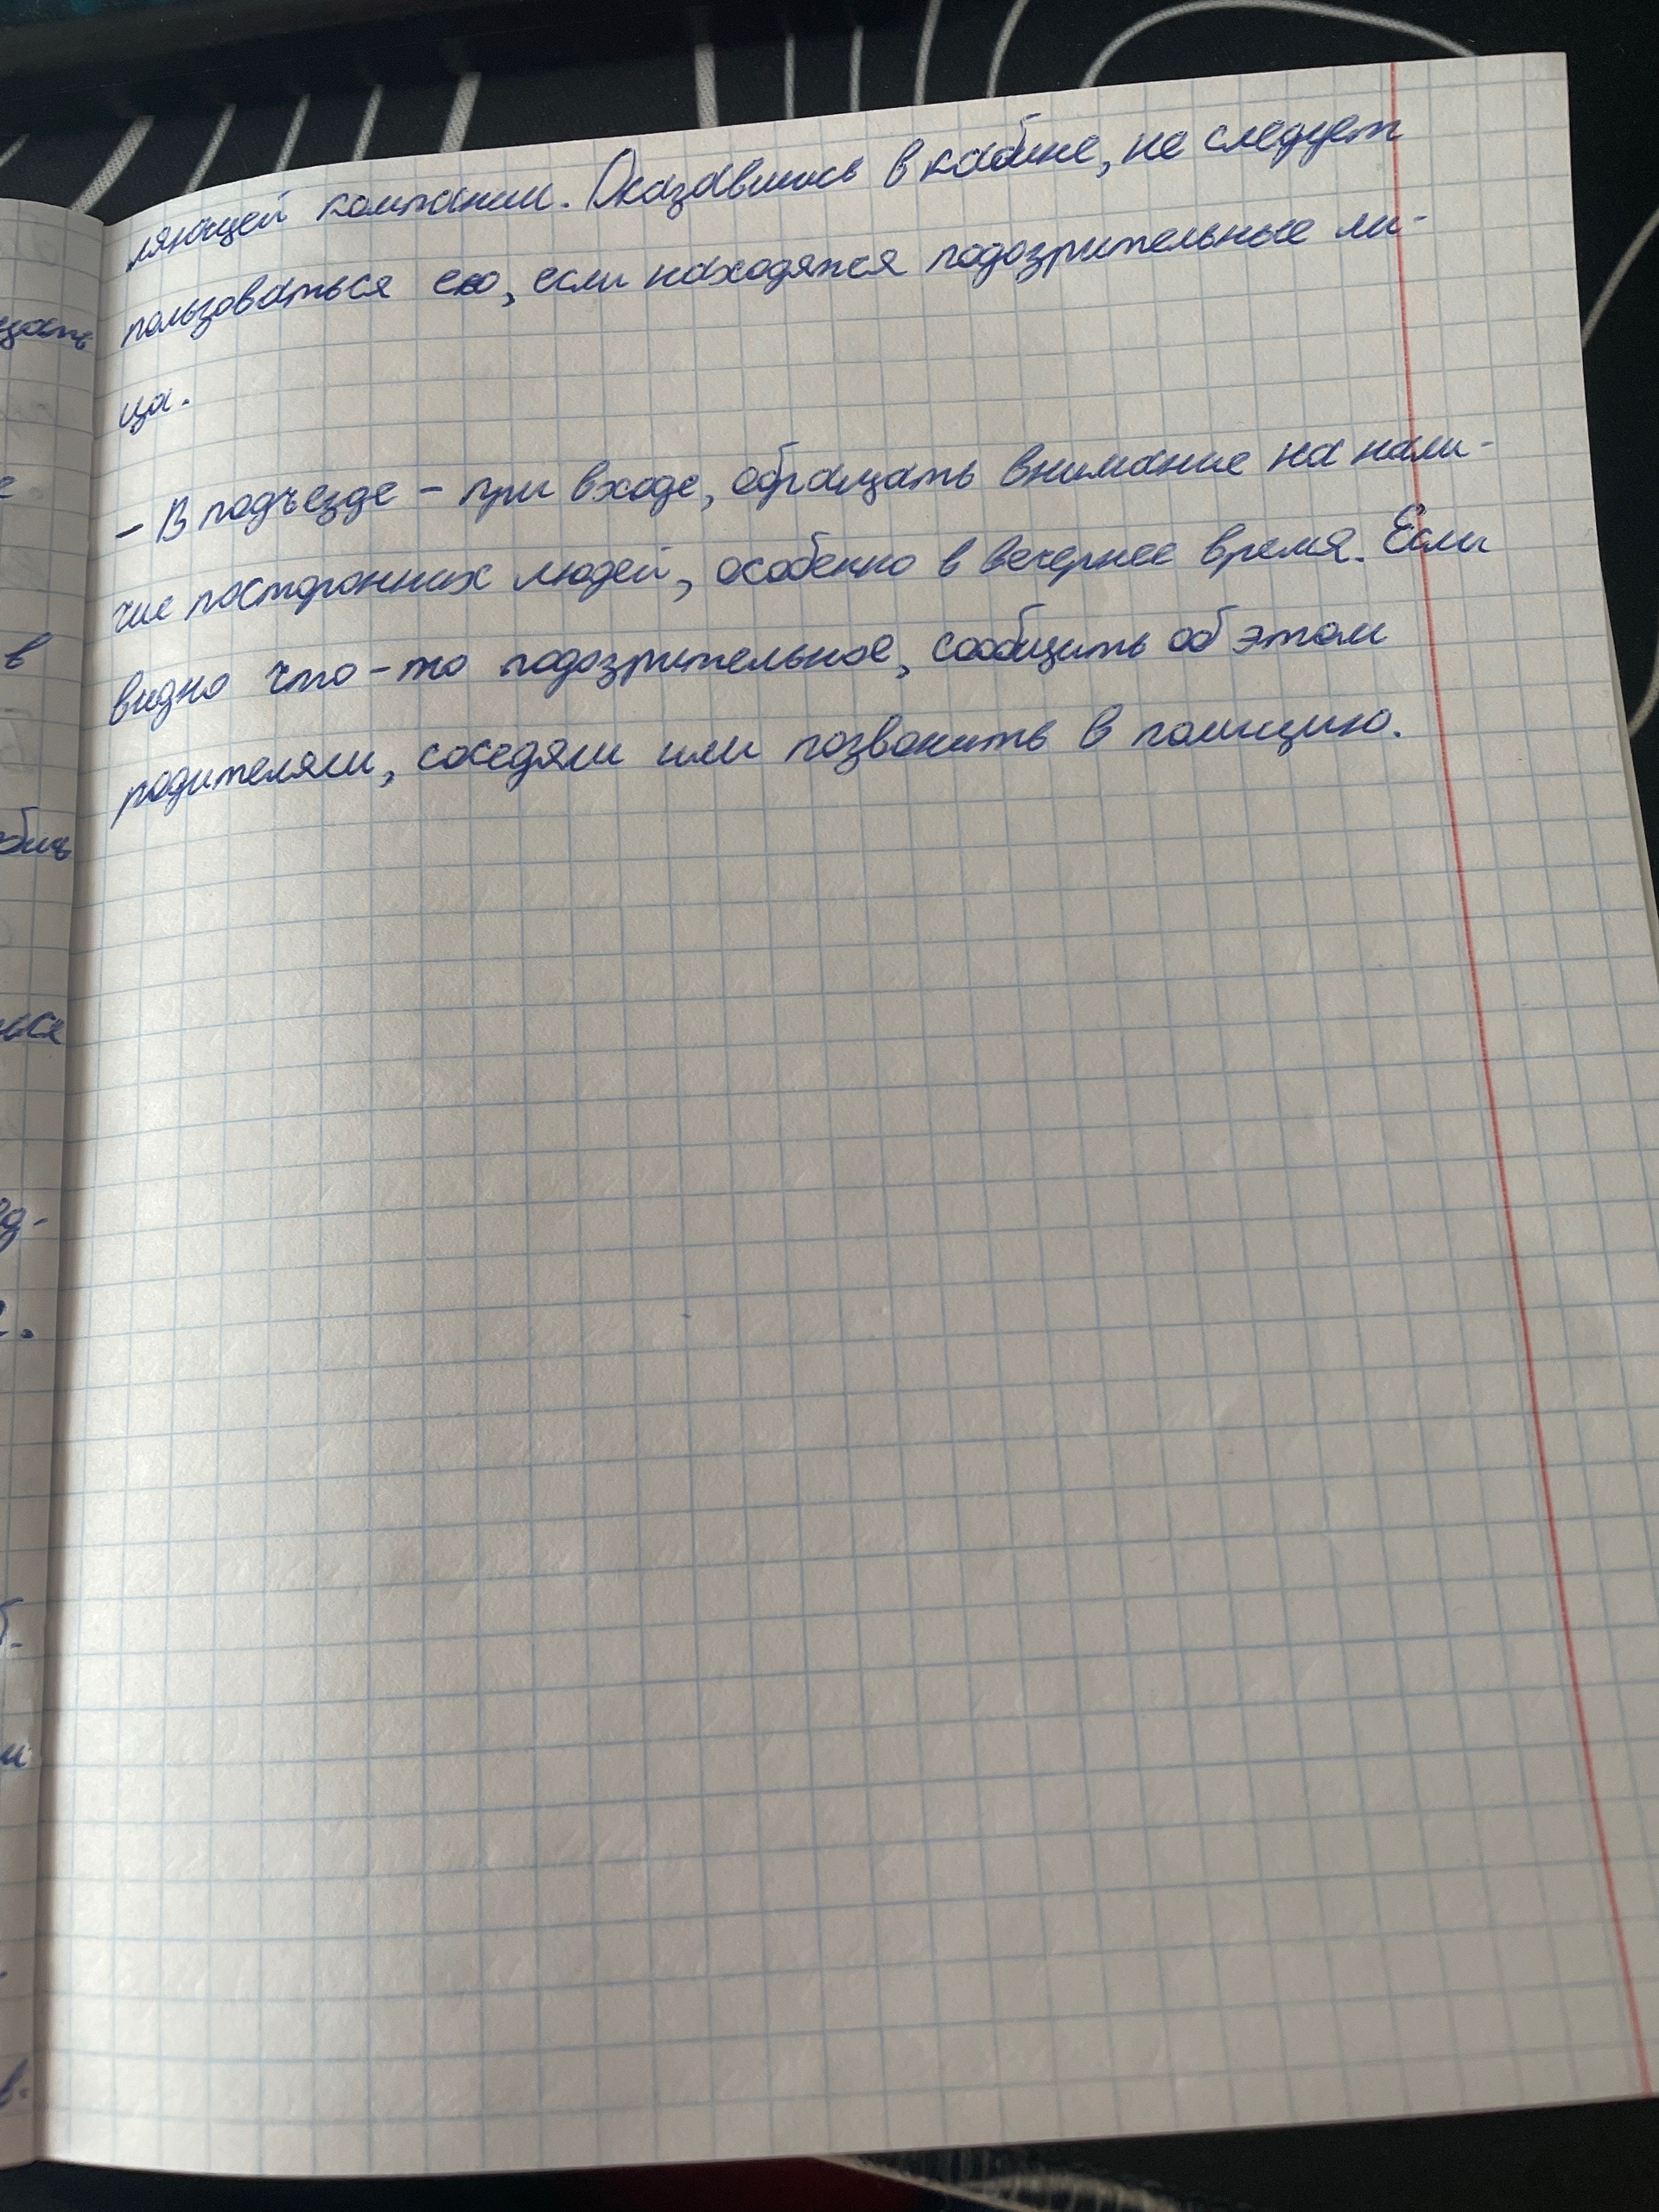 ляющей компании. Оказавшись в кабине, не следует
пользоваться ею, если находятся подозрительные ли-
ца.
- В подъезде - при входе, обращать внимание на нали-
чие посторонних людей, особенно в вечернее время. Если
видно что-то подозрительное, сообщить об этом
родителям, соседям или позвонить в полицию.